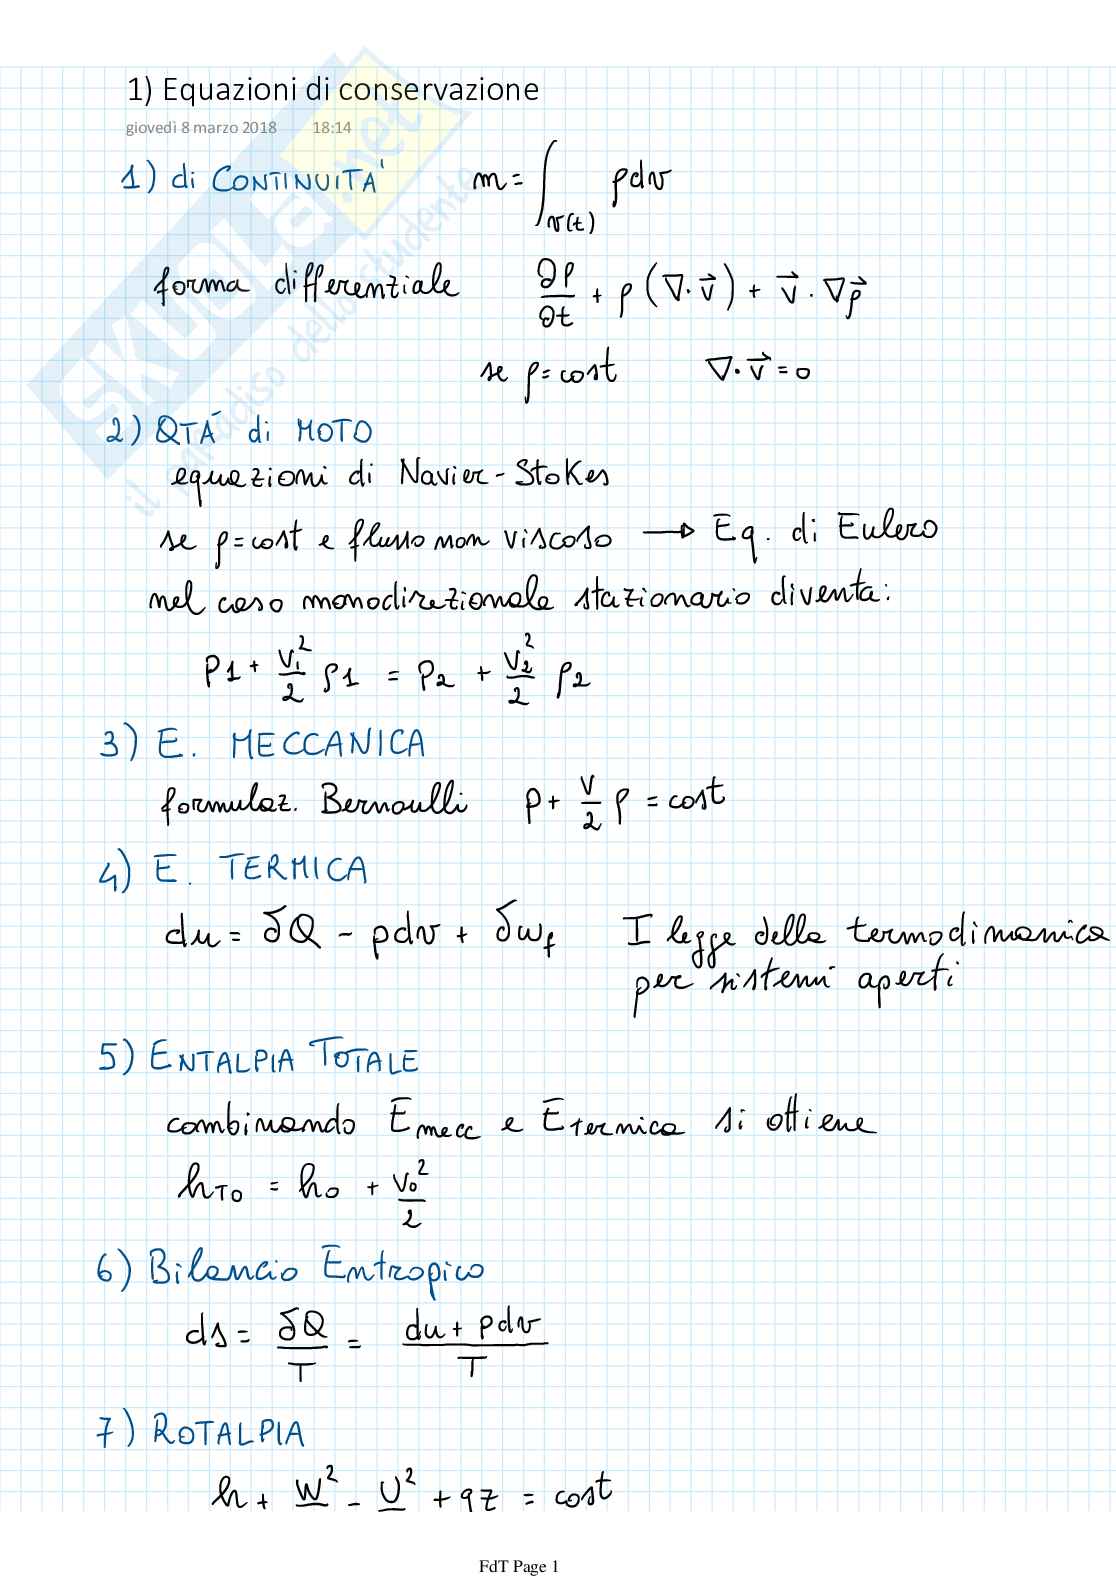 1) Equazioni di conservazione
giovedì 8 marzo 2018 18:14
1) di CONTINUITA' m = ∫_v(t) ρdv
forma differenziale ∂ρ/∂t + ρ(∇·v⃗) + v⃗·∇ρ⃗
se ρ=cost ∇·v⃗=0
2) QTÁ di MOTO
equazioni di Navier-Stokes
se ρ=cost e flusso non viscoso → Eq. di Eulero
nel caso monodirezionale stazionario diventa:
P1 + V₁²/2 ρ1 = P2 + V₂²/2 ρ2
3) E. MECCANICA
formulaz. Bernoulli p + V/2 ρ = cost
4) E. TERMICA
du = δQ - pdv + δw_f I legge della termodimanica
per sistemi aperti
5) ENTALPIA TOTALE
combinando Emecc e Etermica si ottiene
h_TO = h_0 + V₀²/2
6) Bilancio Entropico
ds = δQ/T = (du + pdv)/T
7) ROTALPIA
h + W² - U² + gz = cost
FdT Page 1
SKUOLA.net
il paradiso dello studente